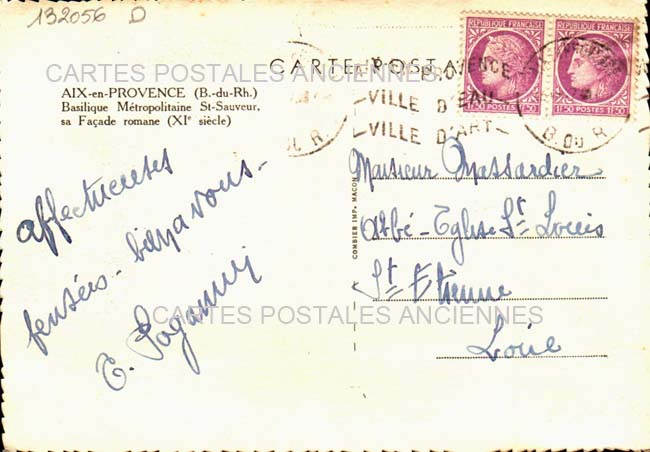 132056 D
CARTES POSTALES ANCIENNES
CARTE POSTALE
AIX-en-PROVENCE (B.-du-Rh.)
Basilique Métropolitaine St-Sauveur,
sa Façade romane (XIe siècle)
REPUBLIQUE FRANÇAISE
REPUBLIQUE FRANÇAISE
1F50 POSTES 1F50
1F50 POSTES 1F50
PROVENCE
VILLE D'EAU
VILLE D'ART
B. DU R.
affectueuses
pensées - bien à vous -
E. Paganini
COMBIER IMP. MACON
Monsieur Massardier
Abbé - Eglise St Louis
St Etienne
Loire
CARTES POSTALES ANCIENNES